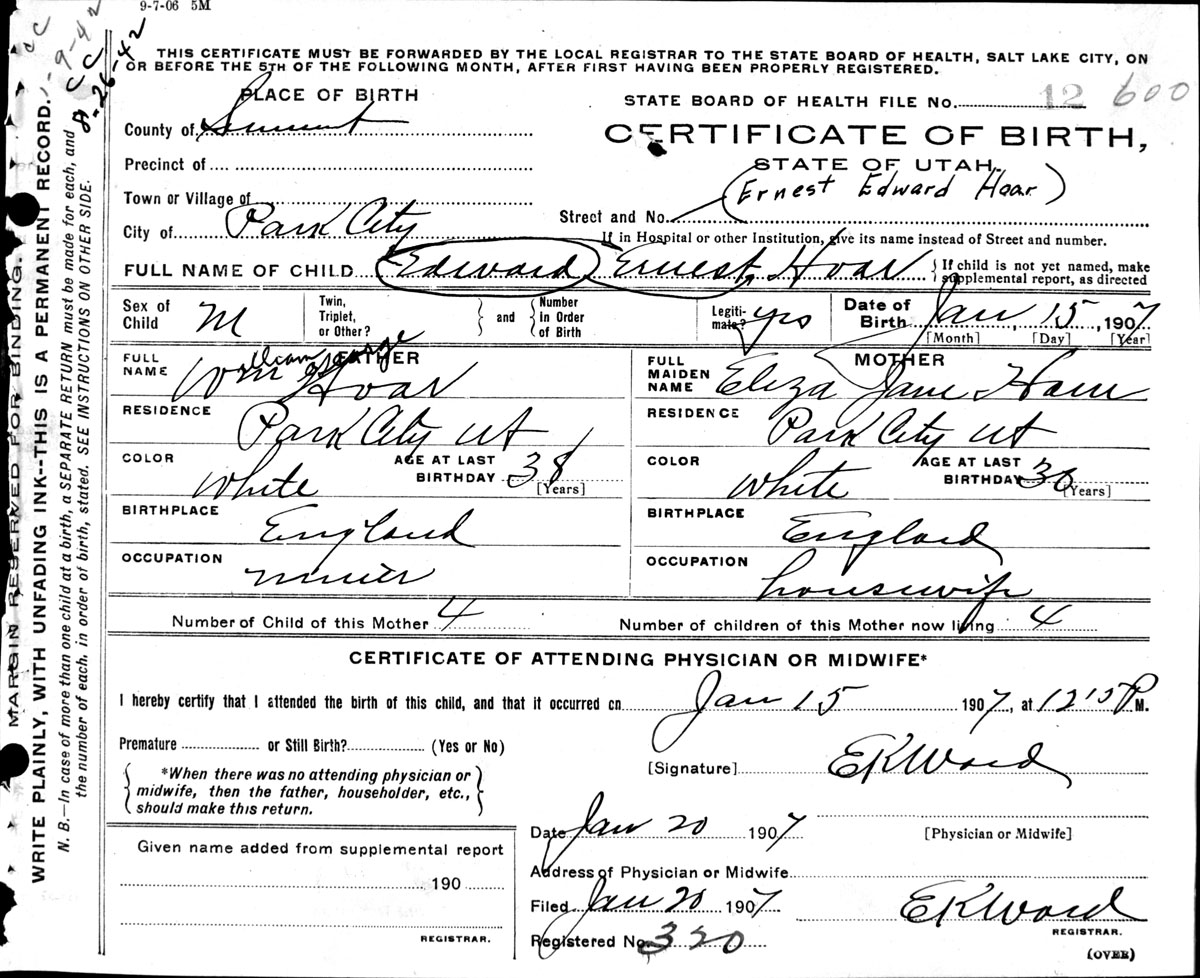 9-7-06 5M
THIS CERTIFICATE MUST BE FORWARDED BY THE LOCAL REGISTRAR TO THE STATE BOARD OF HEALTH, SALT LAKE CITY, ON
OR BEFORE THE 5TH OF THE FOLLOWING MONTH, AFTER FIRST HAVING BEEN PROPERLY REGISTERED.
PLACE OF BIRTH
STATE BOARD OF HEALTH FILE No. 12 600
County of Summit
CERTIFICATE OF BIRTH,
Precinct of
STATE OF UTAH.
(Ernest Edward Hoar)
Town or Village of
Street and No.
City of Park City
If in Hospital or other Institution, give its name instead of Street and number.
FULL NAME OF CHILD Edward Ernest Hoar { If child is not yet named, make
supplemental report, as directed
Sex of Child M
Twin, Triplet, or Other? } and { Number In Order of Birth
Legiti-mate? yes
Date of Birth Jan 15, 1907
[Month] [Day] [Year]
FATHER
FULL NAME William George Hoar
MOTHER
FULL MAIDEN NAME Eliza Jane Ham
RESIDENCE Park City Ut
RESIDENCE Park City Ut
COLOR White AGE AT LAST BIRTHDAY 38 [Years]
COLOR White AGE AT LAST BIRTHDAY 36 [Years]
BIRTHPLACE England
BIRTHPLACE England
OCCUPATION miner
OCCUPATION housewife
Number of Child of this Mother 4 Number of children of this Mother now living 4
CERTIFICATE OF ATTENDING PHYSICIAN OR MIDWIFE*
I hereby certify that I attended the birth of this child, and that it occurred on Jan 15 1907, at 1215 P M.
Premature or Still Birth? (Yes or No)
[Signature] EKWard
{ *When there was no attending physician or
midwife, then the father, householder, etc.,
should make this return. }
Date Jan 20 1907
[Physician or Midwife]
Given name added from supplemental report
190
REGISTRAR.
Address of Physician or Midwife
Filed Jan 20 1907 EKWard
REGISTRAR.
Registered No. 320
(OVER)
MARGIN RESERVED FOR BINDING.
WRITE PLAINLY, WITH UNFADING INK--THIS IS A PERMANENT RECORD.
N. B.—In case of more than one child at a birth, a SEPARATE RETURN must be made for each, and
the number of each, in order of birth, stated. SEE INSTRUCTIONS ON OTHER SIDE.
CC
-9-42
CC
8-26-42